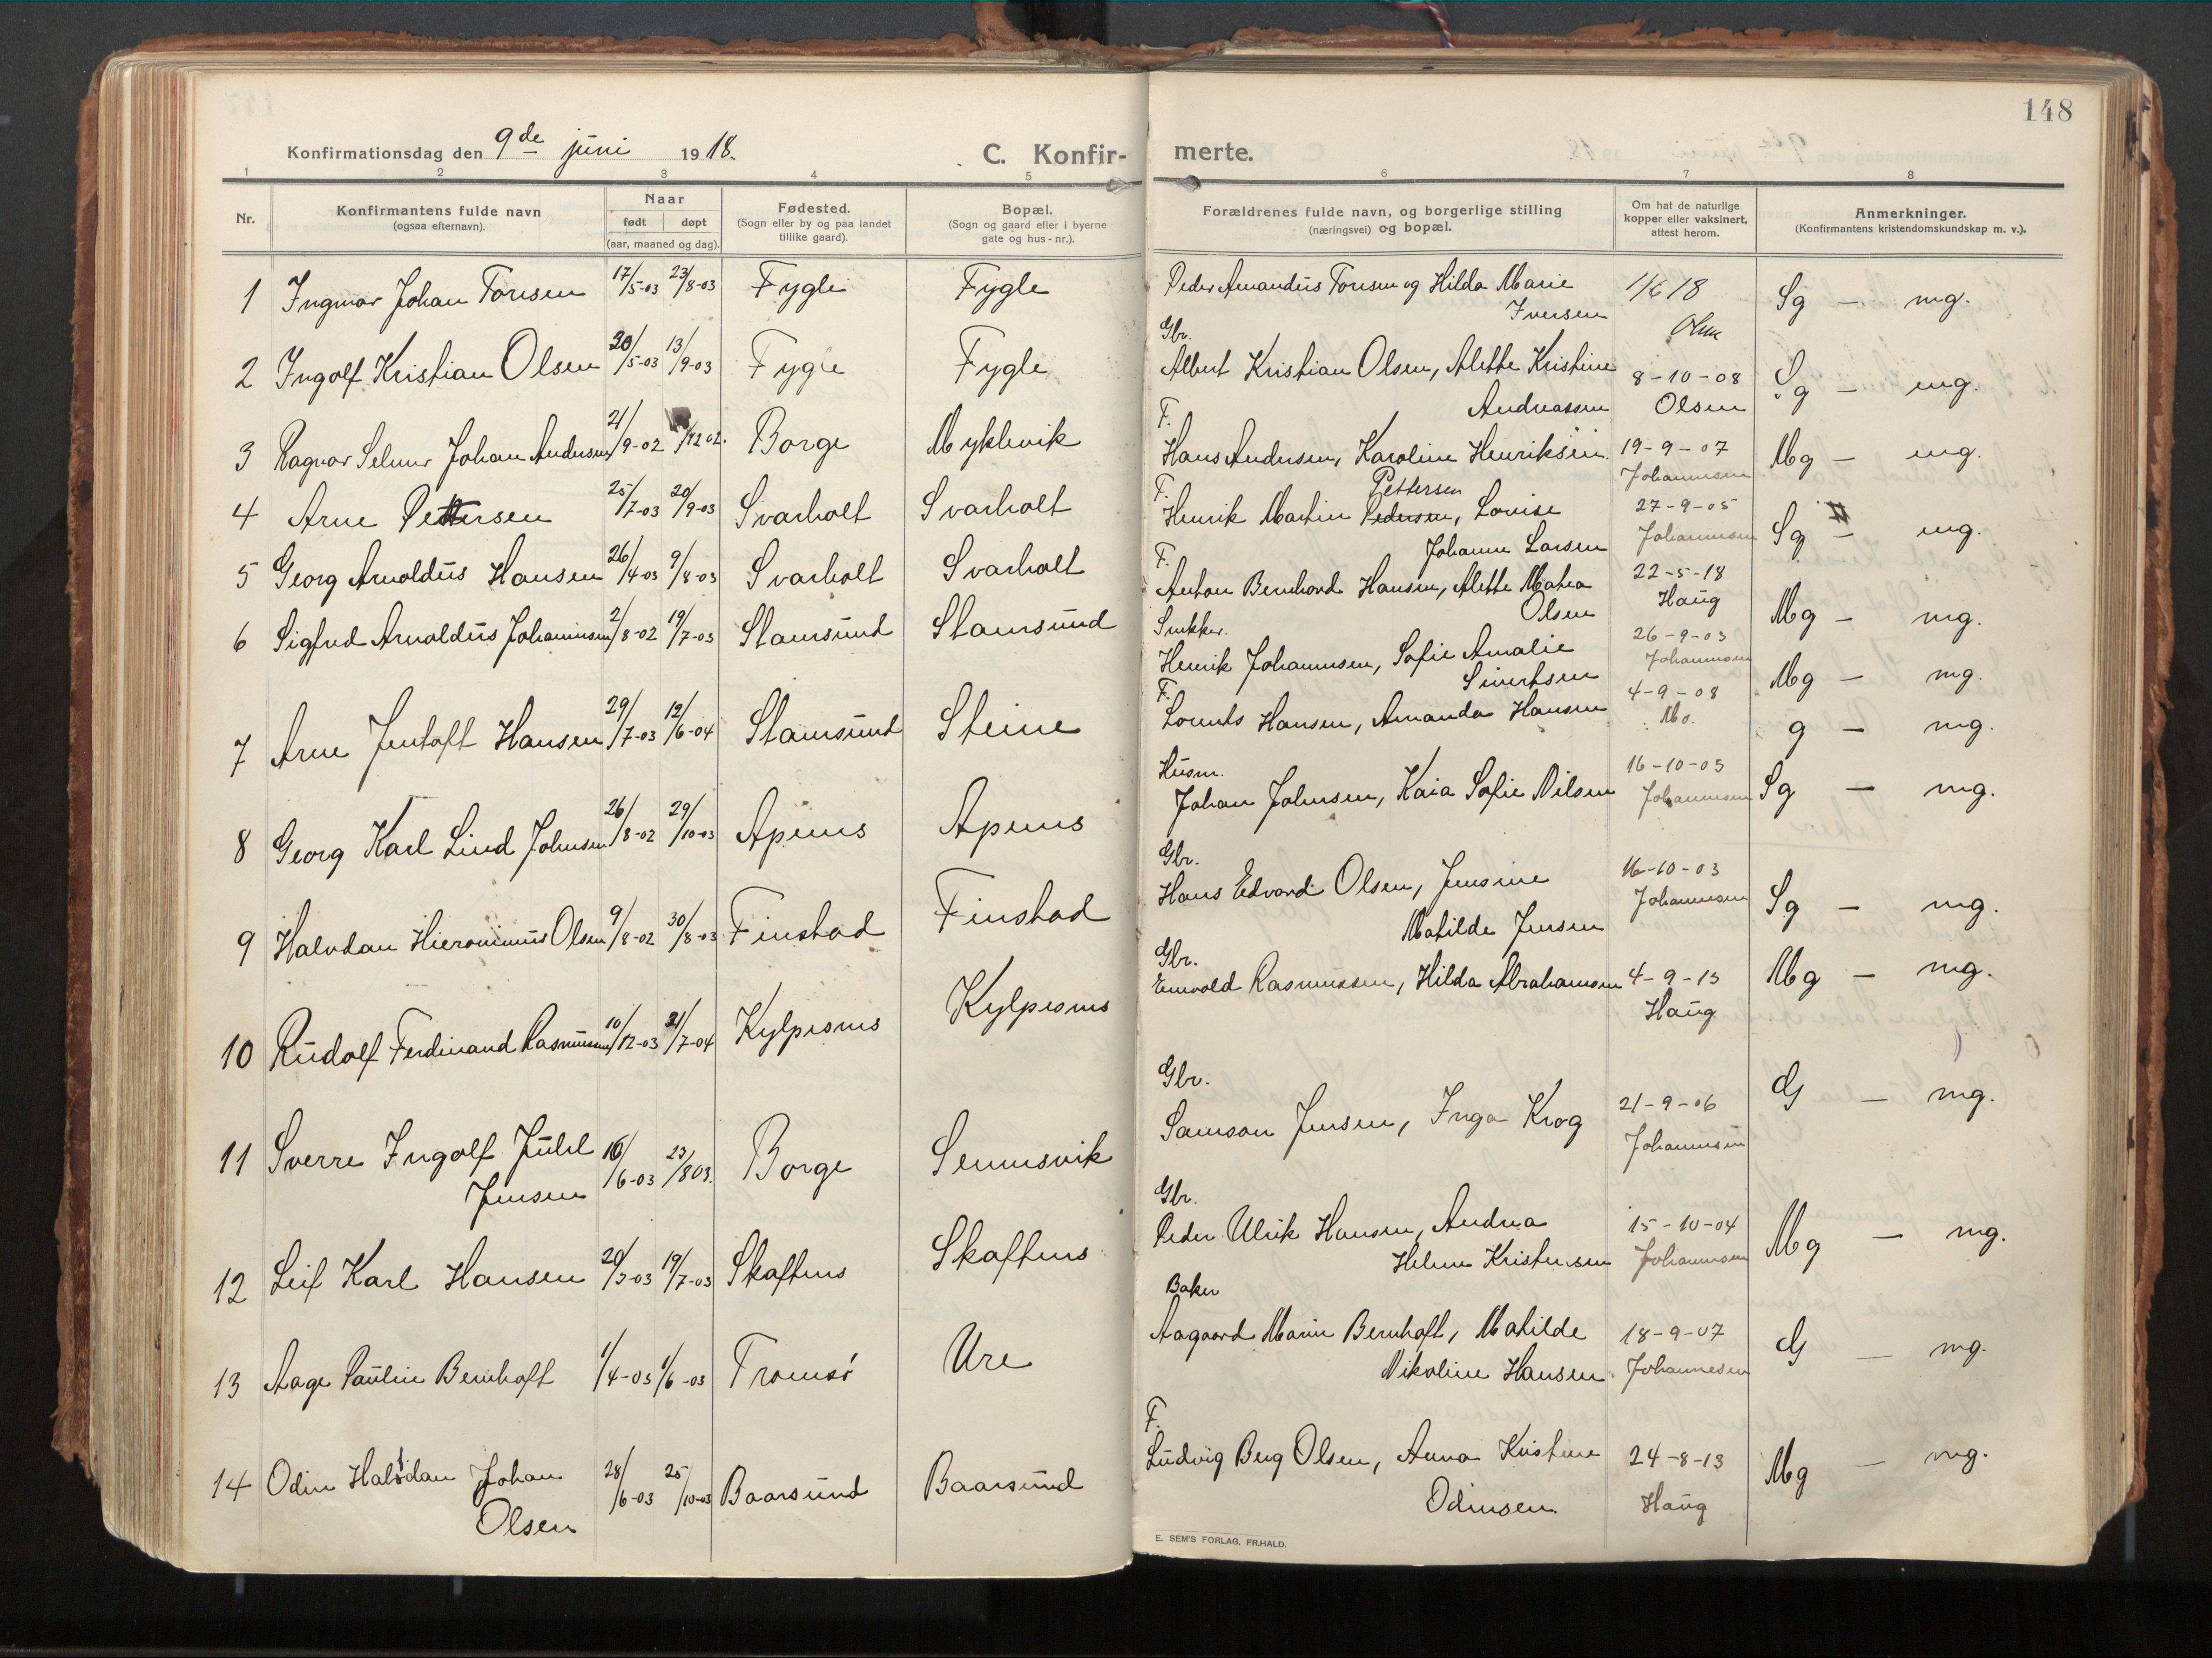 148
Konfirmationsdag den 9de juni 1918.
C. Konfir- merte.
1 2 3 4 5 6 7 8
Nr.
Konfirmantens fulde navn
(ogsaa efternavn).
Naar
født døpt
(aar, maaned og dag).
Fødested.
(Sogn eller by og paa landet
tillike gaard).
Bopæl.
(Sogn og gaard eller i byerne
gate og hus-nr.).
Forældrenes fulde navn, og borgerlige stilling
(næringsvei) og bopæl.
Om hat de naturlige
kopper eller vaksinert,
attest herom.
Anmerkninger.
(Konfirmantens kristendomskundskap m. v.).
1 Ingmar Johan Tonsen 17/5-03 23/8-03 Fygle Fygle Peder Amandus Tonsen og Hilda Marie 1/6 18 Sg - mg.
Iversen
Gbr.
2 Ingolf Kristian Olsen 20/5-03 13/9-03 Fygle Fygle Albert Kristian Olsen, Alette Kristine 8-10-08 Sg - mg.
Andreassen Olsen
F.
3 Ragnar Selmer Johan Andersen 21/9-02 /12 02. Borge Myklevik Hans Andersen, Karoline Henriksen 19-9-07 Mg - mg.
Johannesen
F. Pettersen
4 Arne Pettersen 25/7-03 20/9-03 Svarholt Svarholt Henrik Martin Pedersen, Lovise 27-9-05 Sg - mg.
Johanne Larsen Johannesen
F.
5 Georg Arnoldus Hansen 26/4-03 9/8-03 Svarholt Svarholt Anton Bernhard Hansen, Alette Matea 22-5-18 Mg - mg.
Olsen Haug
Snekker.
6 Sigfred Arnoldus Johannesen 2/8-02 19/7-03 Stamsund Stamsund Henrik Johannesen, Sofie Amalie 26-9-03 Mg - mg.
Sivertsen Johannesen
F.
7 Arne Jentoft Hansen 29/7-03 12/6-04 Stamsund Steine Lorents Hansen, Amanda Hansen 4-9-08 g - mg.
Mo.
Husm.
8 Georg Karl Lind Johnsen 26/8-02 29/10-03 Apenes Apenes Johan Johnsen, Kaia Sofie Nilsen 16-10-03 Sg - mg.
Johannesen
Gbr.
9 Halvdan Hieronimus Olsen 9/8-02 30/8-03 Finstad Finstad Hans Edvard Olsen, Jensine 16-10-03 Sg - mg.
Matilde Jensen Johannesen
Gbr.
10 Rudolf Ferdinand Rasmussen 10/12-03 31/7-04 Kylpesnes Kylpesnes Enevold Rasmussen, Hilda Abrahamsen 4-9-13 Mg - mg.
Haug
Gbr.
11 Sverre Ingolf Juhl 16/6-03 23/8 03. Borge Sennesvik Samson Jensen, Inga Krog 21-9-06 G - mg.
Jensen Johannesen
Gbr.
12 Leif Karl Hansen 20/3-03 19/7-03 Skaftnes Skaftnes Peder Ulrik Hansen, Andrea 15-10-04 Mg - mg.
Helene Kristensen Johannesen
Baker
13 Aage Pauline Bernhoft 1/4-03 1/6-03 Tromsø Ure Aagaard Marin Bernhoft, Matilde 18-9-07 G - mg.
Nikoline Hansen Johannesen
F.
14 Odin Halvdan Johan 28/6-03 25/10-03 Baarsund Baarsund Ludvig Berg Olsen, Anna Kristine 24-8-13 Mg - mg.
Olsen Odinsen Haug
E. SEM'S FORLAG. FR.HALD.